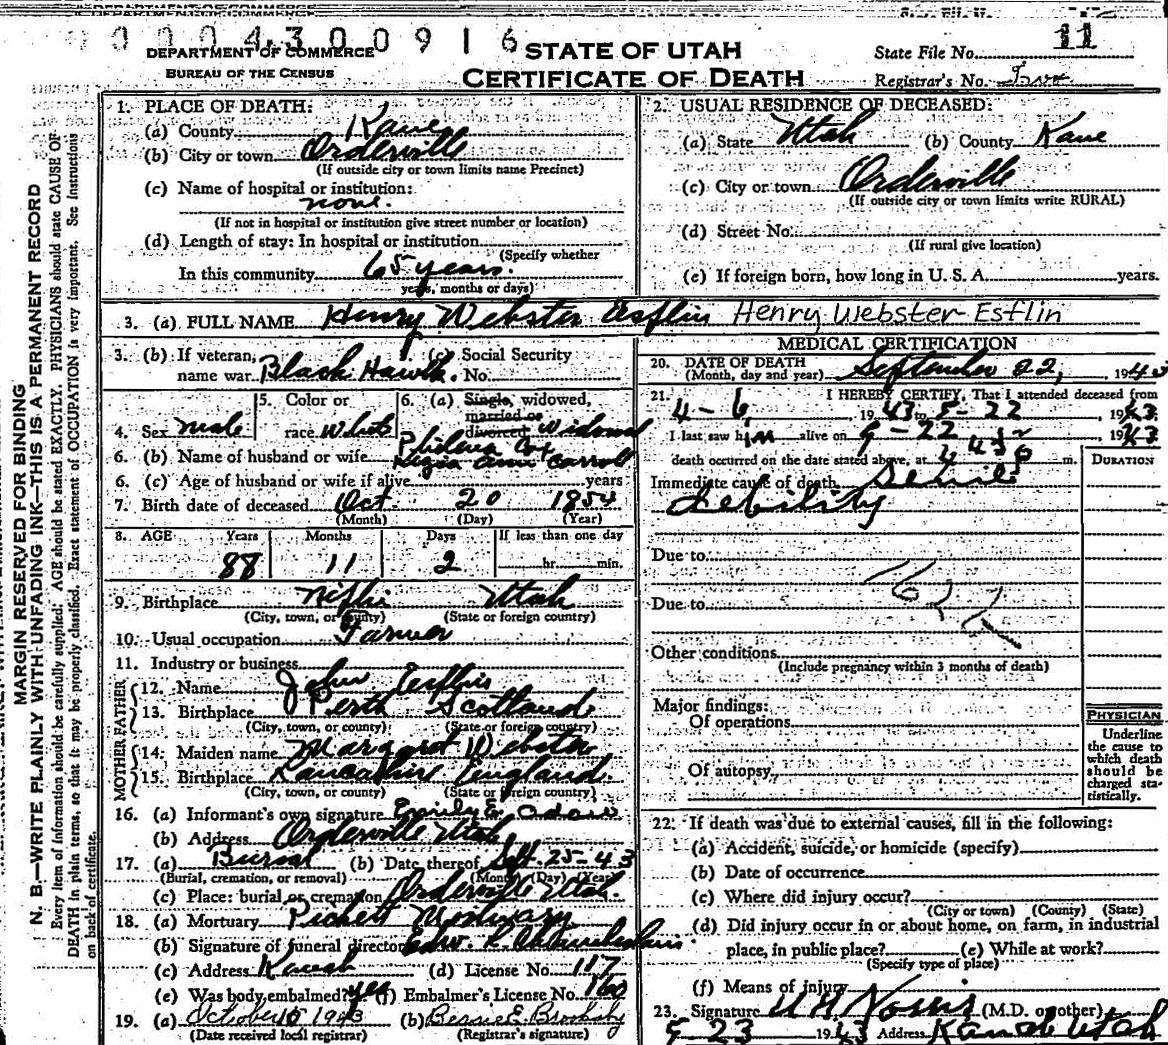 DEPARTMENT OF COMMERCE
0 0 0 4 3 0 0 9 1 6
DEPARTMENT OF COMMERCE
BUREAU OF THE CENSUS
STATE OF UTAH
CERTIFICATE OF DEATH
State File No. 11
Registrar's No.
MARGIN RESERVED FOR BINDING
N. B.—WRITE PLAINLY WITH UNFADING INK—THIS IS A PERMANENT RECORD
Every item of information should be carefully supplied. AGE should be stated EXACTLY. PHYSICIANS should state CAUSE OF
DEATH in plain terms, so that it may be properly classified. Exact statement of OCCUPATION is very important. See Instructions
on back of certificate.
1. PLACE OF DEATH:
(a) County Kane
(b) City or town Orderville
(If outside city or town limits name Precinct)
(c) Name of hospital or institution:
none.
(If not in hospital or institution give street number or location)
(d) Length of stay: In hospital or institution
(Specify whether
In this community 65 years.
years, months or days)
2. USUAL RESIDENCE OF DECEASED:
(a) State Utah (b) County Kane
(c) City or town Orderville
(If outside city or town limits write RURAL)
(d) Street No.
(If rural give location)
(e) If foreign born, how long in U. S. A. years.
3. (a) FULL NAME Henry Webster Esplin Henry Webster Esflin
3. (b) If veteran, name war. Black Hawk. (c) Social Security No.
4. Sex male 5. Color or race White 6. (a) Single, widowed, married or divorced Widowed
6. (b) Name of husband or wife Philena Cox
Kezia Ann Carroll
6. (c) Age of husband or wife if alive years
7. Birth date of deceased Oct. 20 1854
(Month) (Day) (Year)
8. AGE Years Months Days If less than one day
88 11 2 hr. min.
9. Birthplace Nephi Utah
(City, town, or county) (State or foreign country)
10. Usual occupation Farmer
11. Industry or business
FATHER
12. Name John Esplin
13. Birthplace Perth Scotland
(City, town, or county) (State or foreign country)
MOTHER
14. Maiden name Margaret Webster
15. Birthplace Lancashire England.
(City, town, or county) (State or foreign country)
16. (a) Informant's own signature Emily E.
(b) Address Orderville Utah
17. (a) Burial (b) Date thereof Sept. 25-43
(Burial, cremation, or removal) (Month) (Day) (Year)
(c) Place: burial or cremation Orderville Utah.
18. (a) Mortuary Mortuary
(b) Signature of funeral director Chamberlain
(c) Address Kanab (d) License No. 117
(e) Was body embalmed? yes (f) Embalmer's License No. 160
19. (a) October 1943 (b) Bessie E. Brooksby
(Date received local registrar) (Registrar's signature)
MEDICAL CERTIFICATION
20. DATE OF DEATH
(Month, day and year) September 22, 1943
21. I HEREBY CERTIFY, That I attended deceased from
4-6 1943 to 9-22 1943
I last saw him alive on 9-22 1943
death occurred on the date stated above, at m.
DURATION
Immediate cause of death Senile
debility
Due to
Due to
Other conditions
(Include pregnancy within 3 months of death)
Major findings:
Of operations
Of autopsy
PHYSICIAN
Underline
the cause to
which death
should be
charged sta-
tistically.
22. If death was due to external causes, fill in the following:
(a) Accident, suicide, or homicide (specify)
(b) Date of occurrence
(c) Where did injury occur?
(City or town) (County) (State)
(d) Did injury occur in or about home, on farm, in industrial
place, in public place? (e) While at work?
(Specify type of place)
(f) Means of injury
23. Signature Norris (M.D. or other)
9-23 1943 Address Kanab Utah